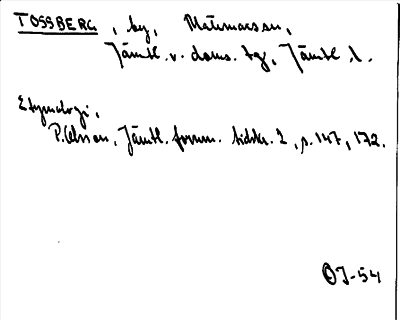 TOSSBERG, by, Mattmarssn,
Jämtl. v. doms. tg, Jämtl. l.
Etymologi,
P. Olsson, Jämtl. fornm. tidskr. 2, s. 147, 172.
OJ-54